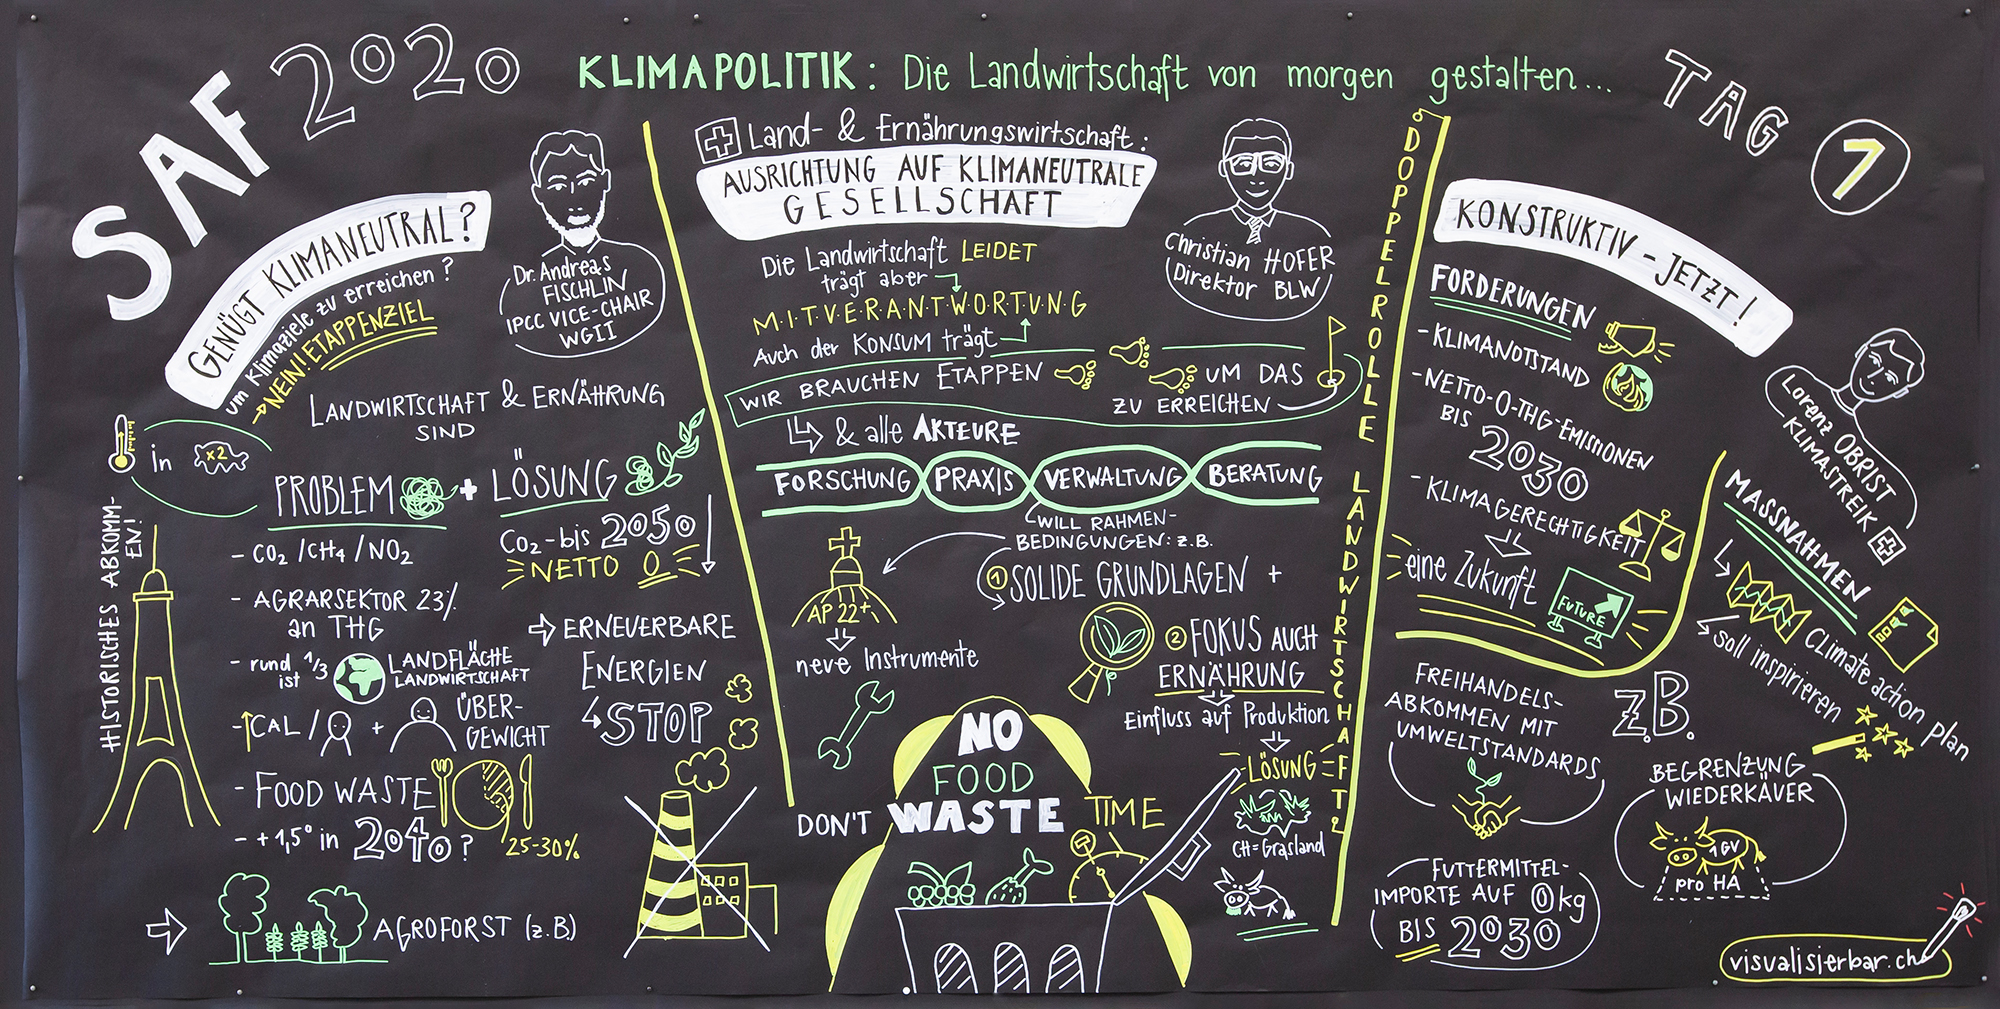 SAF 2020
KLIMAPOLITIK: Die Landwirtschaft von morgen gestalten...
TAG 1
GENÜGT KLIMANEUTRAL?
um Klimaziele zu erreichen?
NEIN! ETAPPENZIEL
Dr. Andreas
FISCHLIN
IPCC VICE-CHAIR
WGII
LANDWIRTSCHAFT & ERNÄHRUNG
SIND
in
x2
PROBLEM + LÖSUNG
HISTORISCHES ABKOMM-
EN!
- CO2/CH4/NO2
- AGRARSEKTOR 23%
an THG
- rund 1/3
ist
LANDFLÄCHE
LANDWIRTSCHAFT
- CAL / +
ÜBER-
GEWICHT
- FOOD WASTE
25-30%
- +1,5° in 2040?
AGROFORST (z.B.)
CO2-bis 2050
NETTO 0
ERNEUERBARE
ENERGIEN
STOP
Land- & Ernährungswirtschaft:
AUSRICHTUNG AUF KLIMANEUTRALE
GESELLSCHAFT
Christian HOFER
Direktor BLW
Die Landwirtschaft LEIDET
trägt aber
M·I·T·V·E·R·A·N·T·W·O·R·T·U·N·G
Auch der KONSUM trägt
WIR BRAUCHEN ETAPPEN UM DAS
ZU ERREICHEN
& alle AKTEURE
FORSCHUNG PRAXIS VERWALTUNG BERATUNG
WILL RAHMEN-
BEDINGUNGEN: z.B.
1 SOLIDE GRUNDLAGEN +
AP 22+
neue Instrumente
2 FOKUS AUCH
ERNÄHRUNG
Einfluss auf Produktion
LÖSUNG
CH=Grasland
NO
FOOD
DON'T WASTE TIME
DOPPELROLLE LANDWIRTSCHAFT
KONSTRUKTIV - JETZT!
Lorenz OBRIST
KLIMASTREIK
FORDERUNGEN
- KLIMANOTSTAND
- NETTO-0-THG-EMISSIONEN
BIS 2030
- KLIMAGERECHTIGKEIT
eine Zukunft
FUTURE
MASSNAHMEN
Climate action plan
soll inspirieren
z.B.
FREIHANDELS-
ABKOMMEN MIT
UMWELTSTANDARDS
BEGRENZUNG
WIEDERKÄUER
1 GV
pro HA
FUTTERMITTEL-
IMPORTE AUF 0kg
BIS 2030
visualisierbar.ch